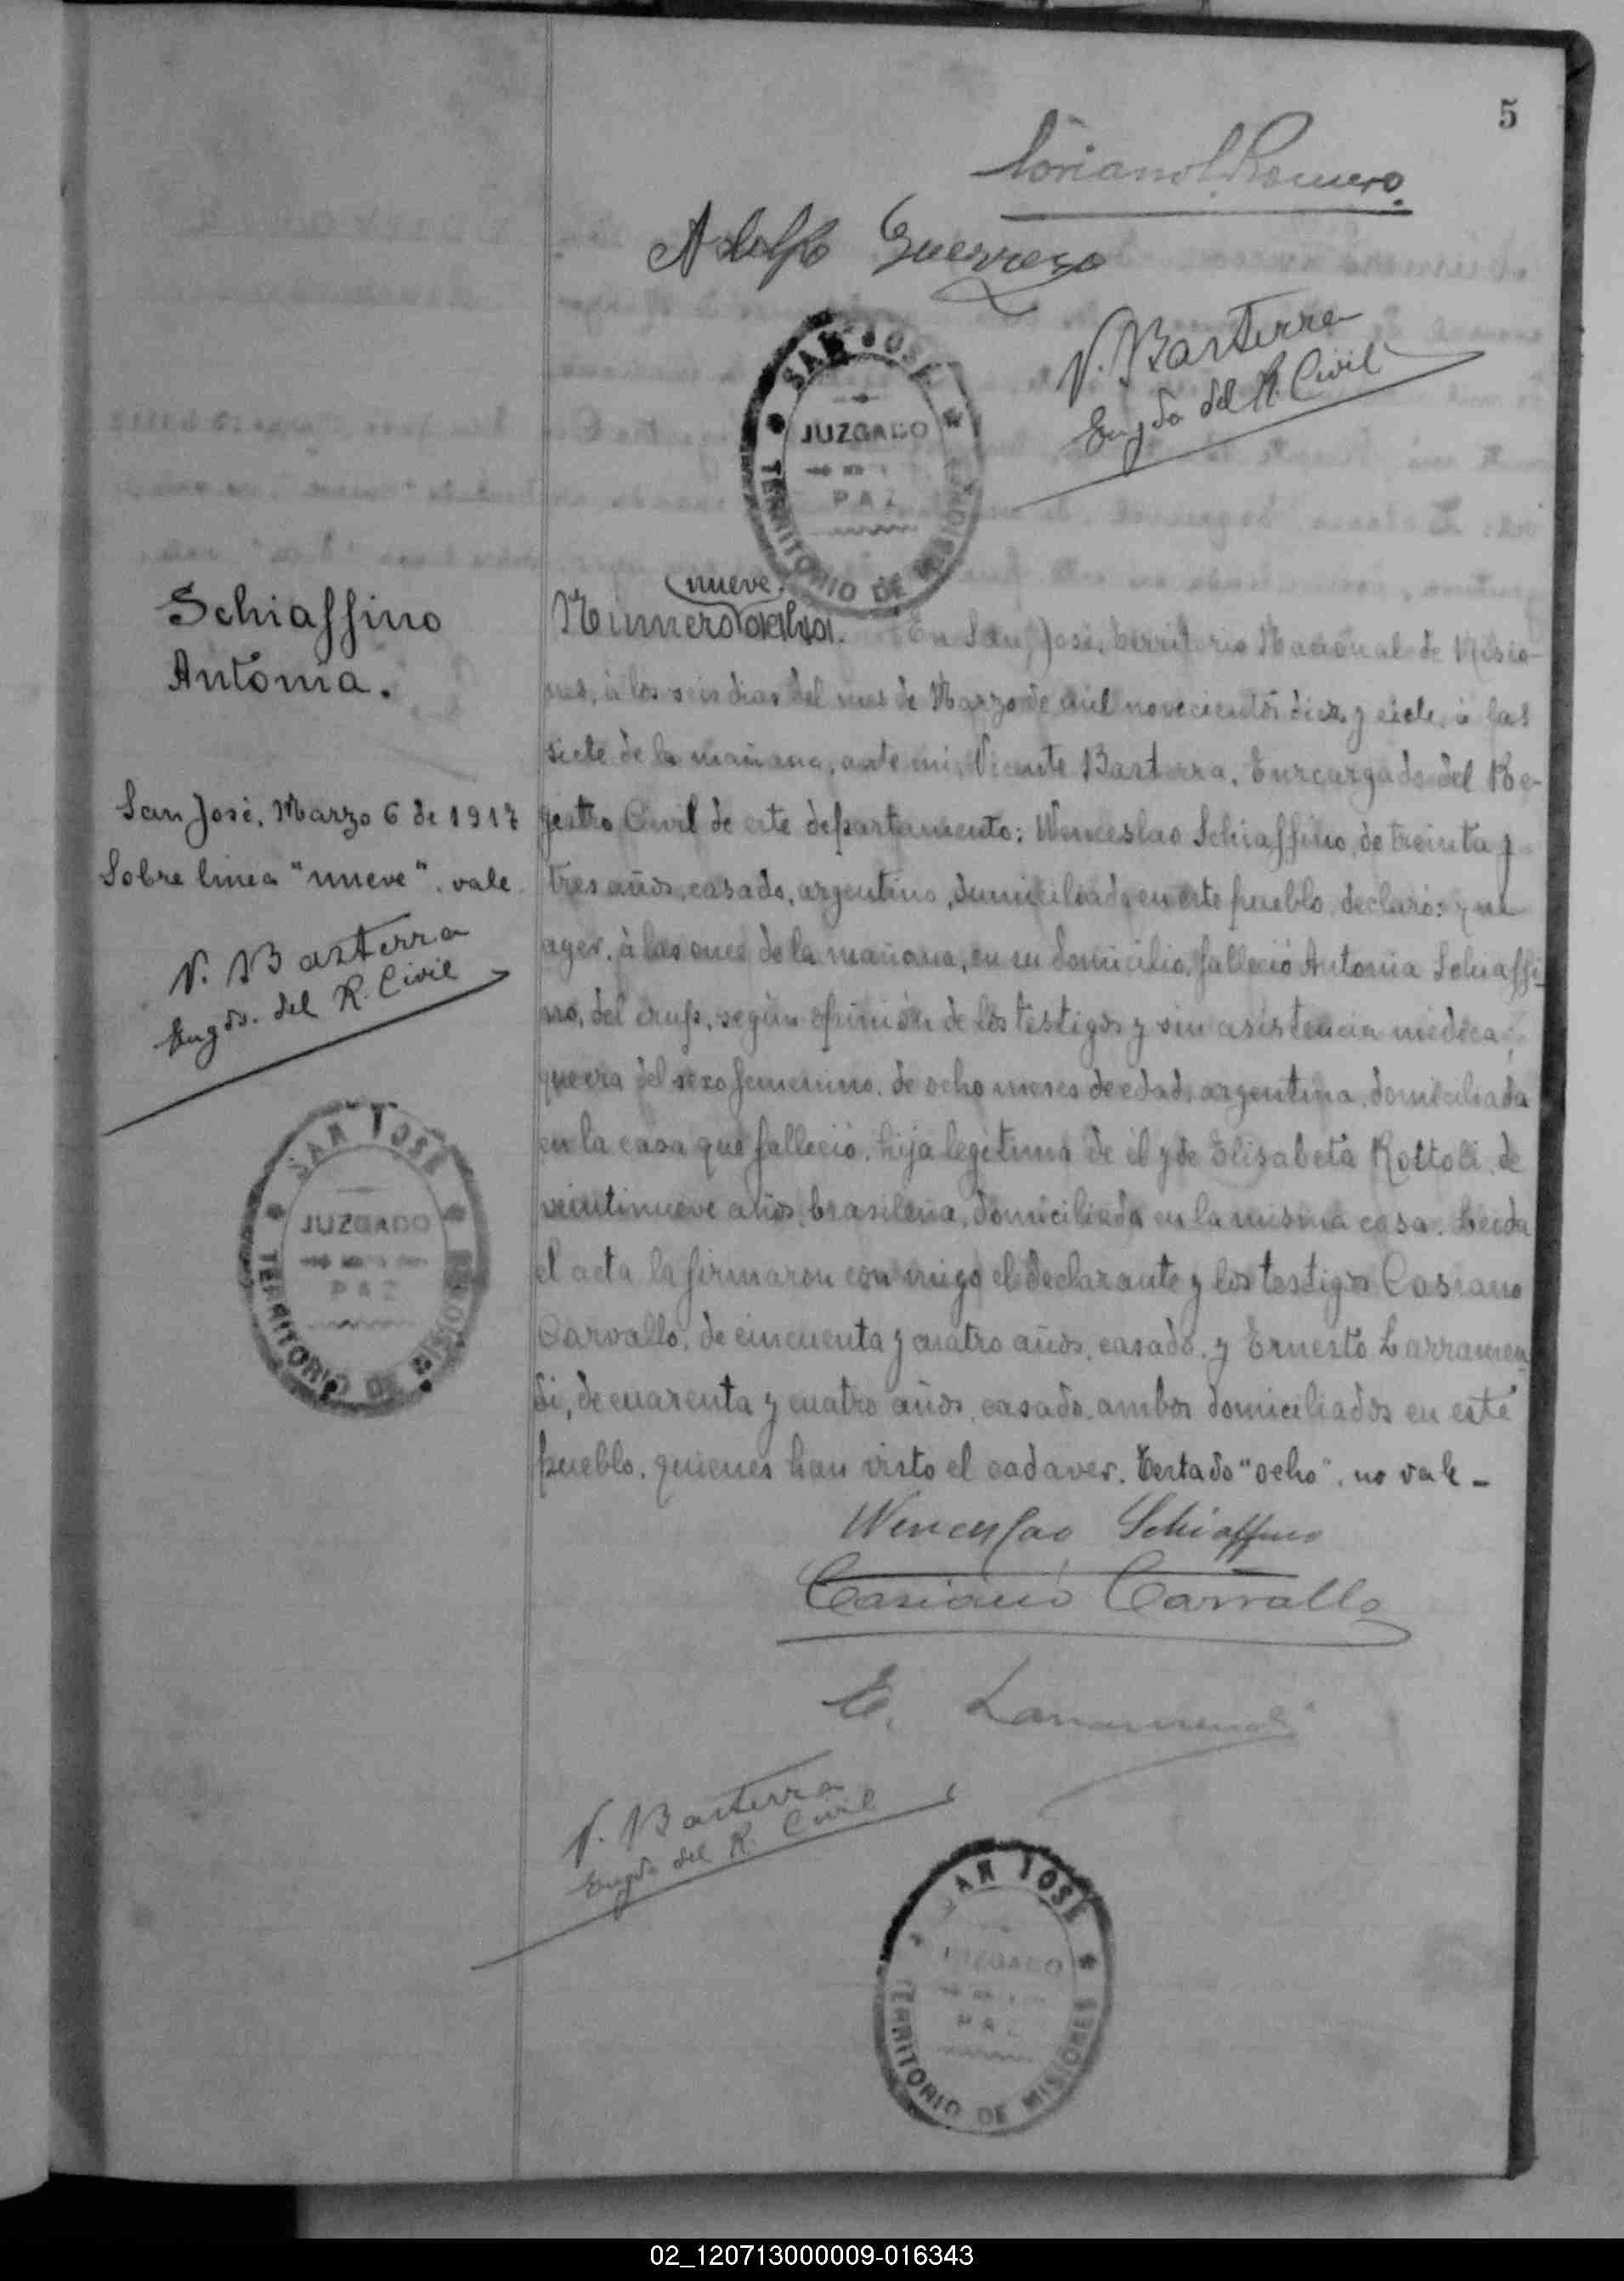 5
Soriano L. Romero
Adolfo Guerrero
N. Basterra
Engdo del R. Civil
SAN JOSE
JUZGADO
PAZ
TERRITORIO DE MISIONES
Schiaffino
Antonia.
San José, Marzo 6 de 1917
Sobre linea "nueve". vale.
V. Basterra
Engdo. del R. Civil
SAN JOSE
JUZGADO
PAZ
TERRITORIO DE MISIONES
nueve
Número ocho. En San José, territorio Nacional de Misio-
nes, à los seis dias del mes de Marzo de mil novecientos diez y siete, à las
siete de la mañana, ante mi, Vicente Basterra, Encargado del Re-
gistro Civil de este departamento: Wenceslao Schiaffino, de treinta y
tres años, casado, argentino, domiciliado en este pueblo, declaró: que
ayer, à las once de la mañana, en su domicilio, falleció Antonia Schiaffi-
no, del crup, según opinión de los testigos y sin asistencia médica,
que era del sexo femenino, de ocho meses de edad, argentina, domiciliada
en la casa que falleció, hija legitima de él y de Elisabeta Rottoli, de
veintinueve años, brasileña, domiciliada en la misma casa. Leida
el acta la firmaron conmigo el declarante y los testigos Casiano
Carvallo, de cincuenta y cuatro años, casado, y Ernesto Larramen
di, de cuarenta y cuatro años, casado, ambos domiciliados en este
pueblo, quienes han visto el cadaver. Testado "ocho". no vale -
Wenceslao Schiaffino
Casiano Carvallo
E. Larramendi
V. Basterra
Engdo del R. Civil
SAN JOSE
JUZGADO
PAZ
TERRITORIO DE MISIONES
02_120713000009-016343